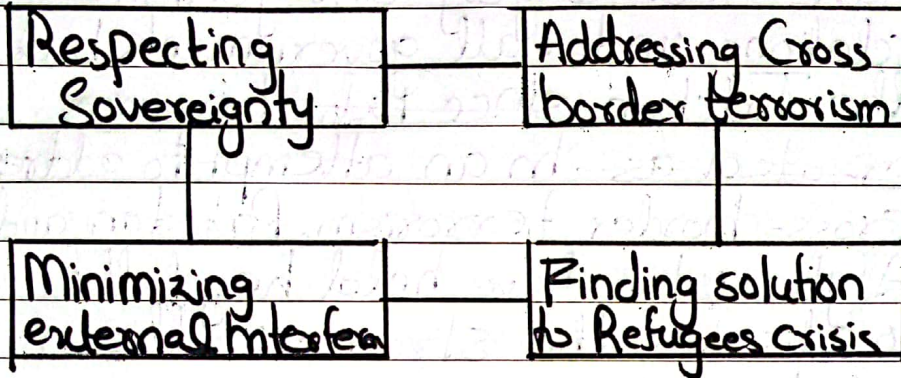 Respecting
Sovereignty
Addressing Cross
border terrorism
Minimizing
external Interferen
Finding solution
to Refugees crisis